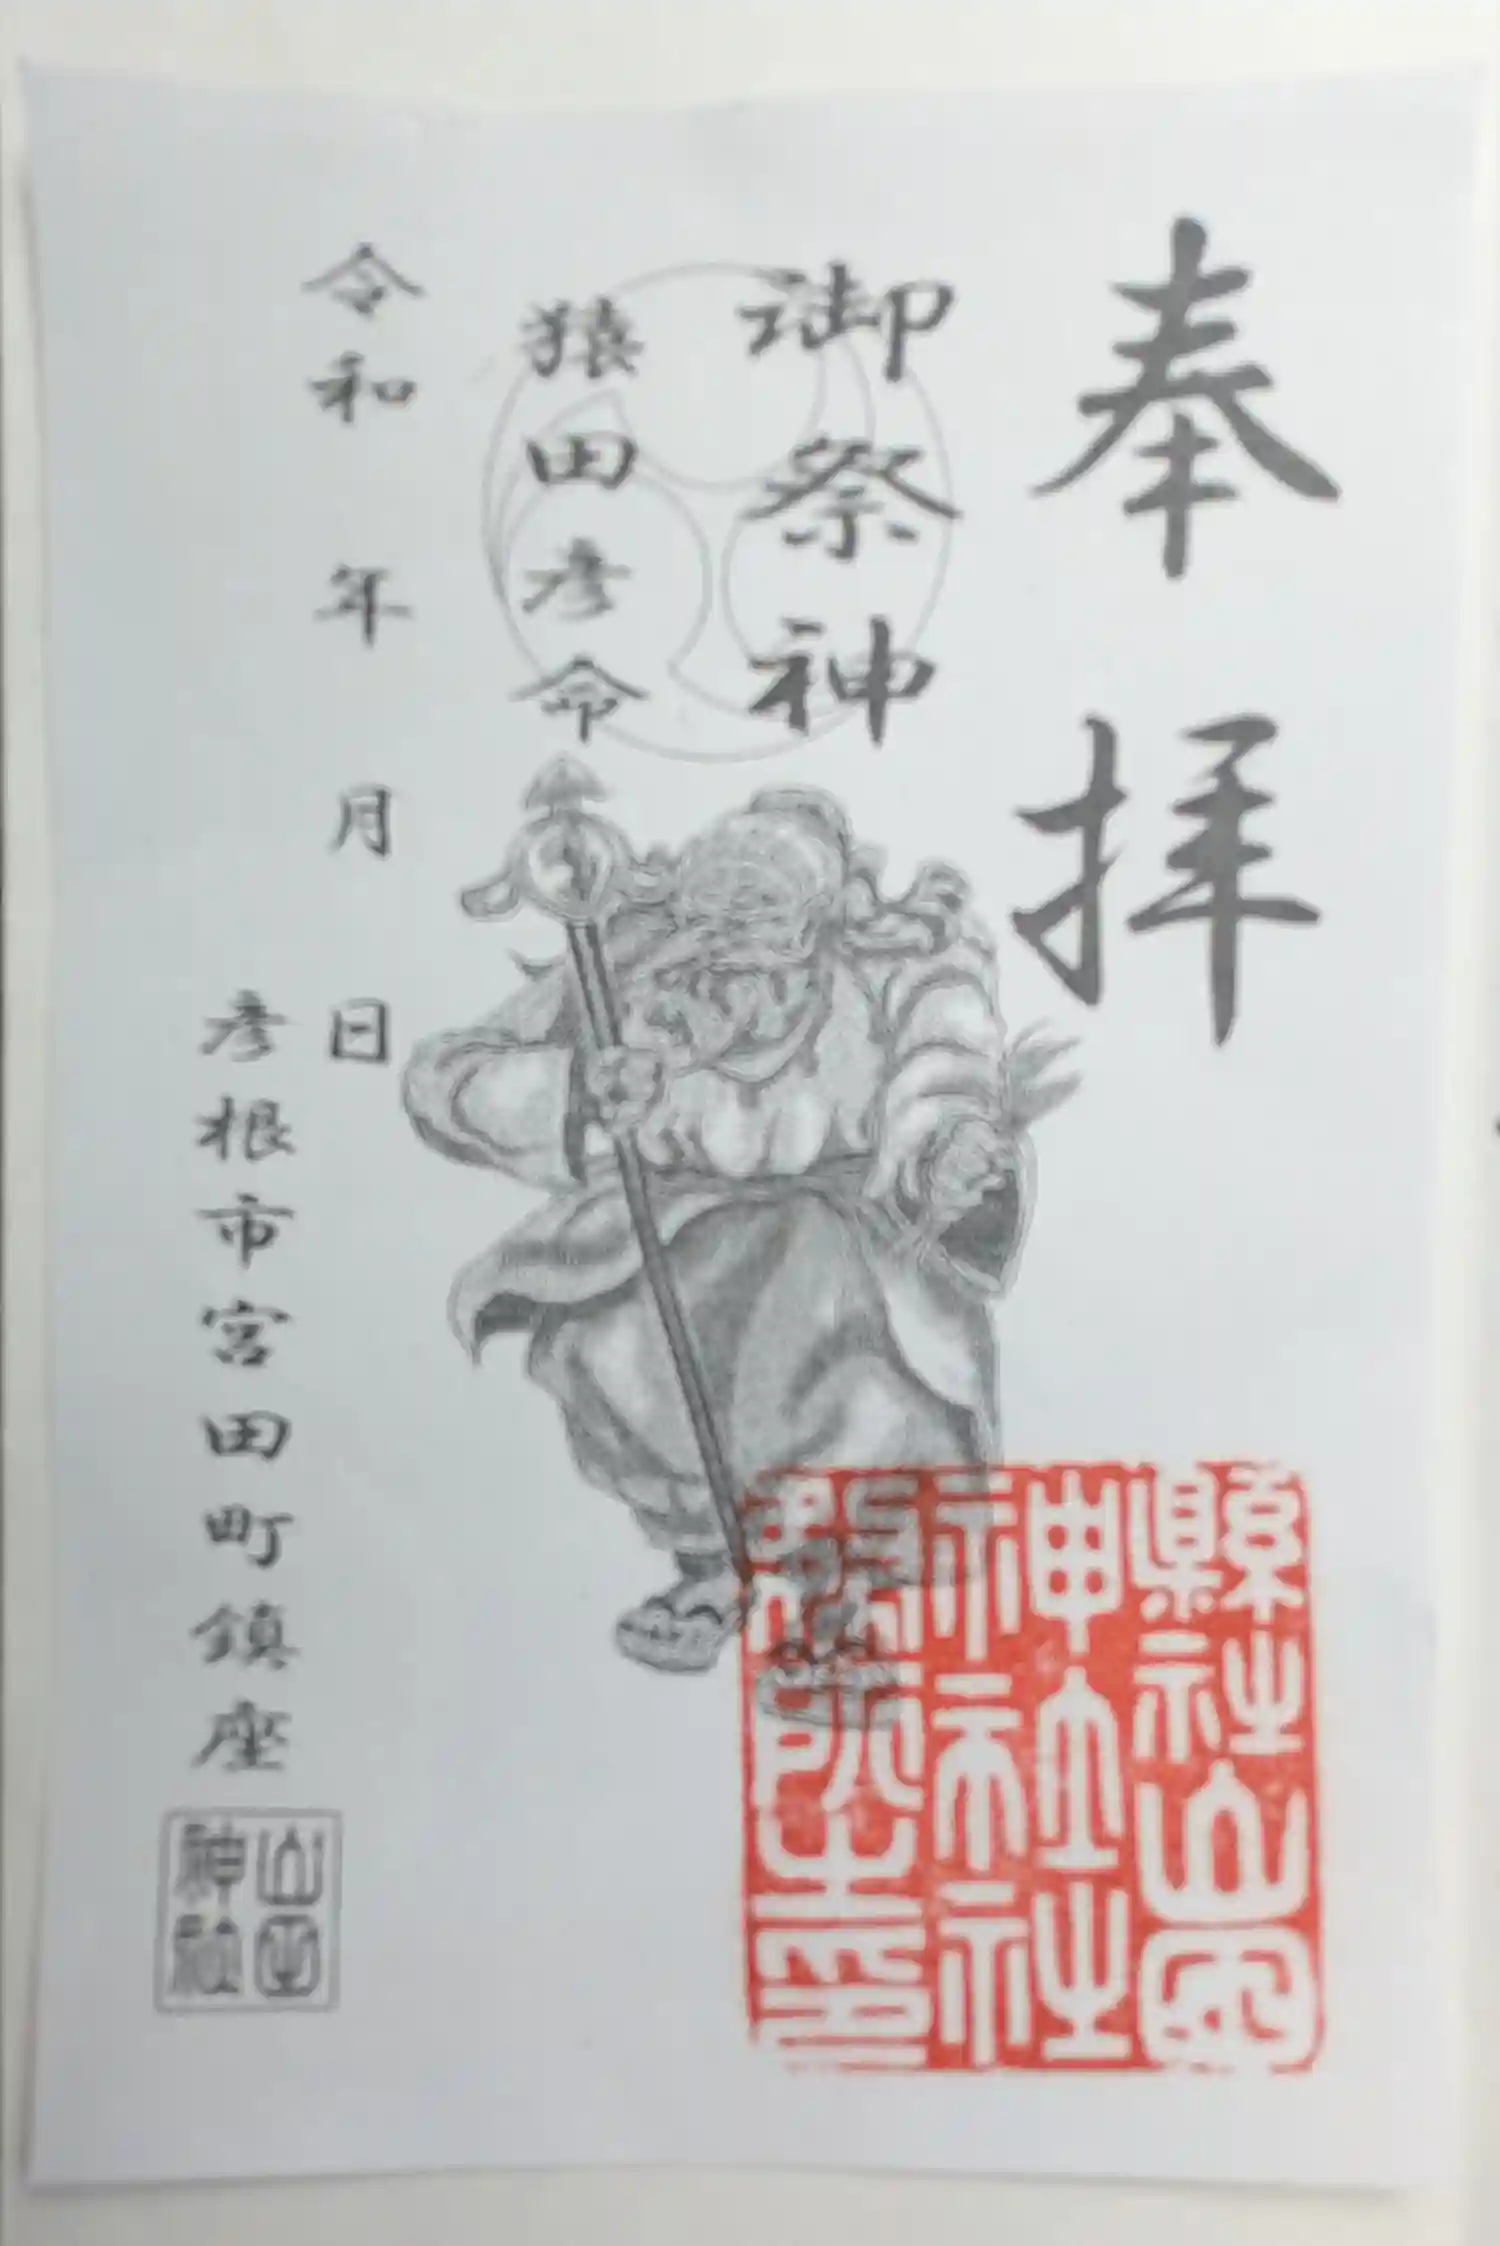 奉拝
御祭神
猿田彦命
令和 年 月 日
彦根市宮田町鎮座
山田
神社
縣社山田
神社社